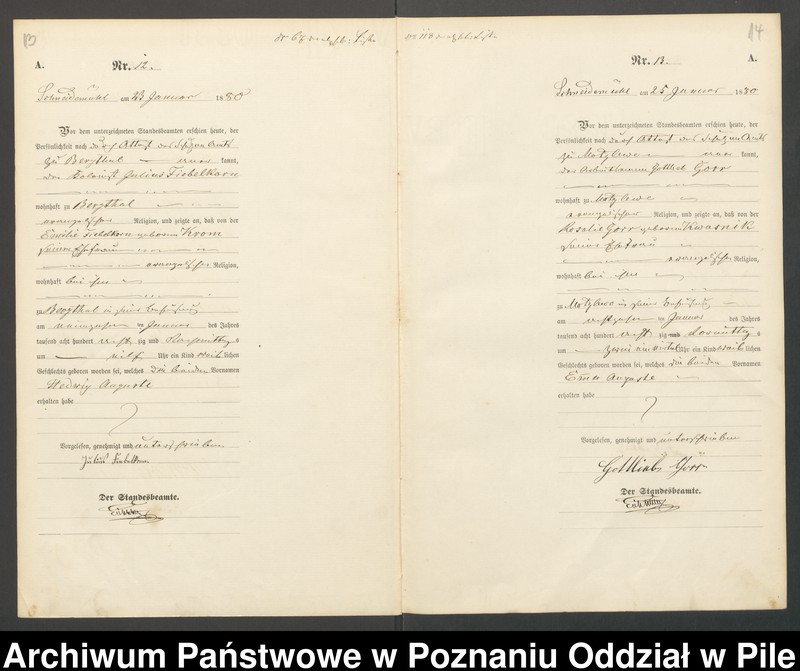 13
A.
Nr. 12.
Schneidemühl am 23 Januar 1880
Vor dem unterzeichneten Standesbeamten erschien heute, der
Persönlichkeit nach durch Attest des Schulzen Amts
zu Bergthal kannt,
der Kolonist Julius Fiebelkorn
wohnhaft zu Bergthal
evangelischer Religion, und zeigte an, daß von der
Emilie Fiebelkorn geborenen Krom
seiner Ehefrau
evangelischer Religion,
wohnhaft bei ihm
zu Bergthal in seiner Behausung
am neunzehnten Januar des Jahres
tausend acht hundert achtzig und Nachmittags
um elf Uhr ein Kind weiblichen
Geschlechts geboren worden sei, welches die beiden Vornamen
Hedwig Auguste
erhalten habe
Vorgelesen, genehmigt und unterschrieben
Julius Fiebelkorn
Der Standesbeamte.
14
Nr. 13.
A.
Schneidemühl am 25 Januar 1880
Vor dem unterzeichneten Standesbeamten erschien heute, der
Persönlichkeit nach durch Attest des Schulzen Amts
zu Motylewo kannt,
der Gottlieb Gorr
wohnhaft zu Motylewo
evangelischer Religion, und zeigte an, daß von der
Rosalie Gorr geborenen Kwasnik
seiner Ehefrau
evangelischer Religion,
wohnhaft bei ihm
zu Motylewo in seiner Behausung
am achtzehnten Januar des Jahres
tausend acht hundert achtzig Vormittags
um zwei ein viertel Uhr ein Kind weiblichen
Geschlechts geboren worden sei, welches die beiden Vornamen
Emma Auguste
erhalten habe
Vorgelesen, genehmigt und unterschrieben
Gottlieb Görr
Der Standesbeamte.
Archiwum Państwowe w Poznaniu Oddział w Pile